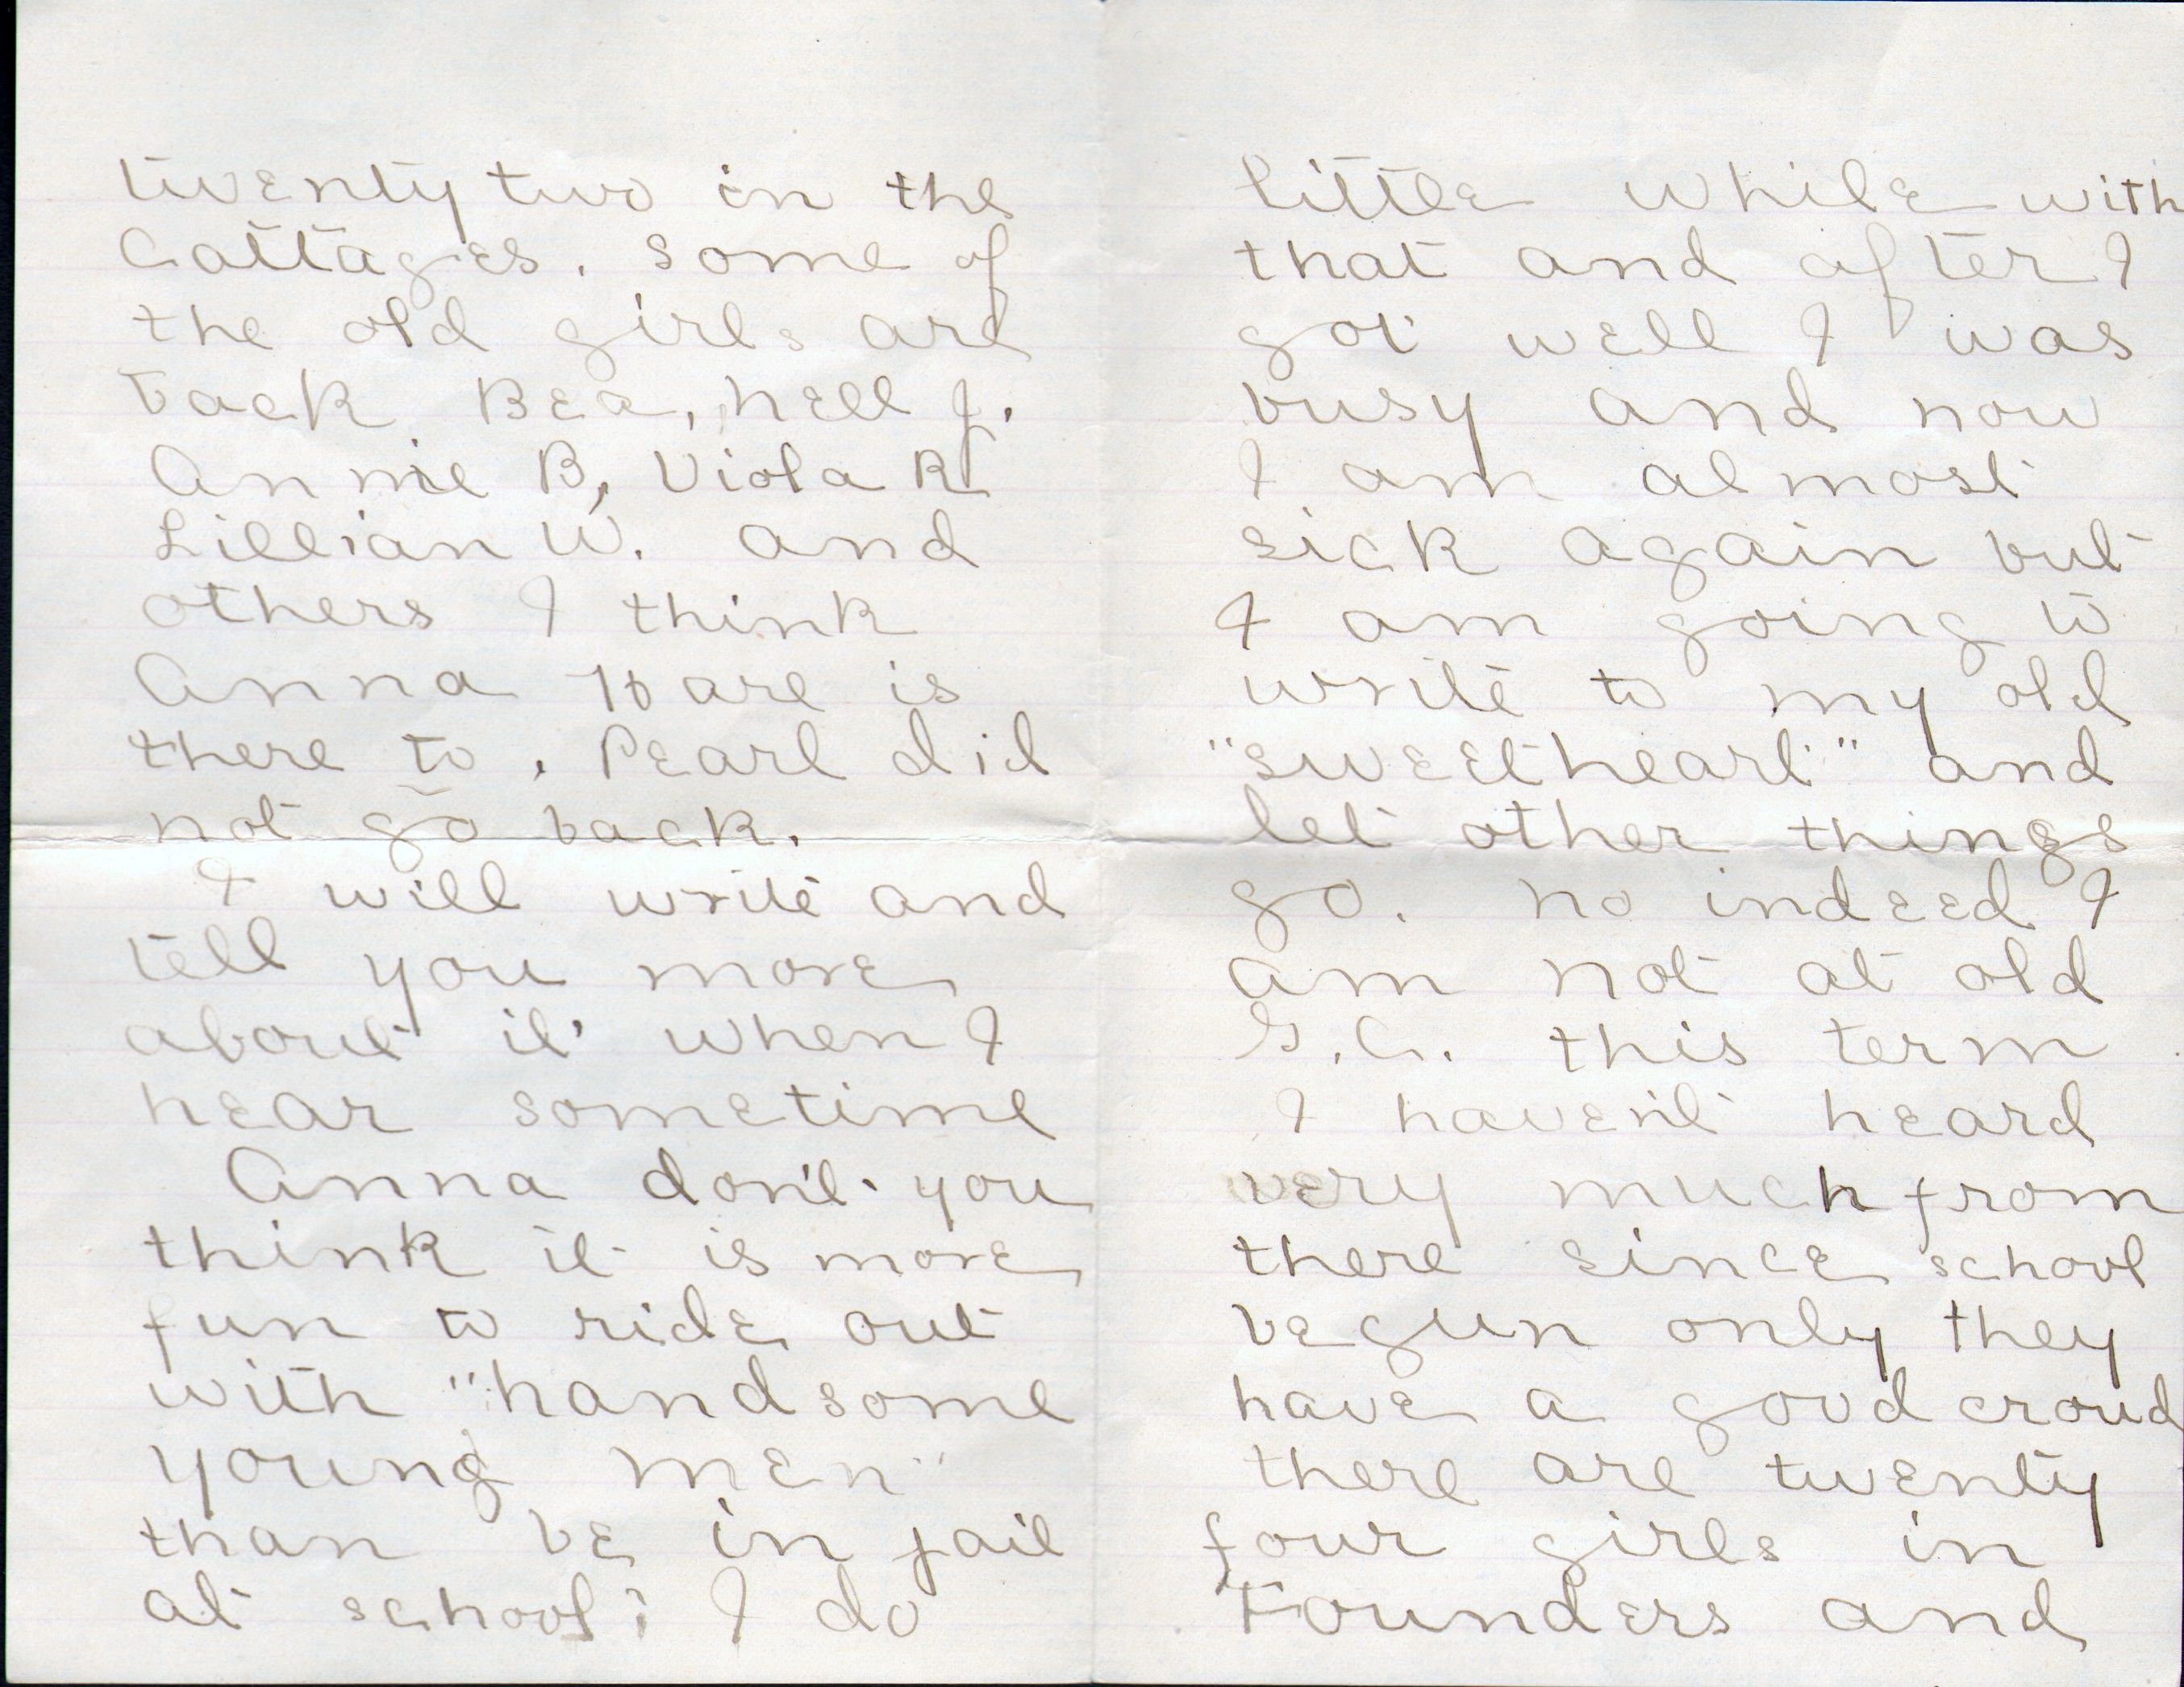 twenty two in the
Cottages. some of
the old girls are
back Bea, Nell J.
Annie B, Viola R
Lillian W. and
others I think
Anna Hare is
there to. Pearl did
not go back.
I will write and
tell you more
about it when I
hear sometime
Anna don't you
think it is more
fun to ride out
with "handsome
young men"
than be in jail
at school? I do
little while with
that and after I
got well I was
busy and now
I am almost
sick again but
I am going to
write to my old
"sweetheart" and
let other things
go. no indeed I
am not at old
G.C. this term
I haven't heard
very much from
there since school
begun only they
have a good croud
there are twenty
four girls in
Founders and